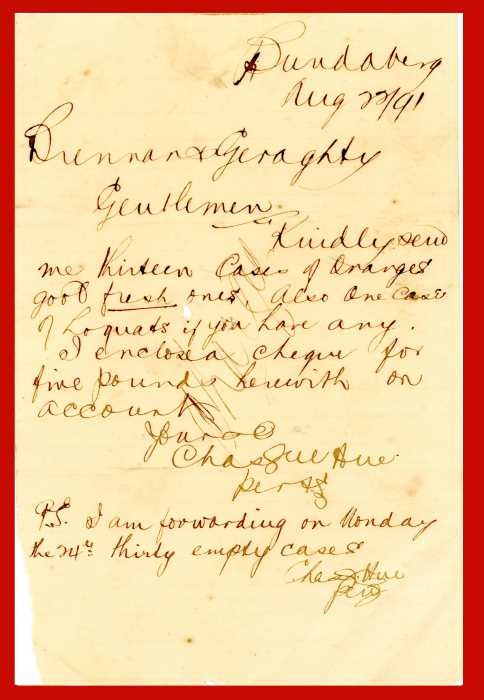 Bundaberg
Aug 22/91
Brennan & Geraghty
Gentlemen
Kindly send
me thirteen Cases of Oranges
good fresh ones, Also One Case
of Loquats if you have any.
I enclose a cheque for
five pounds herewith on
account
Yours
Chas Sue Hue
per
P.S. I am forwarding on Monday
the 24th thirty empty cases
Chas Hue
per